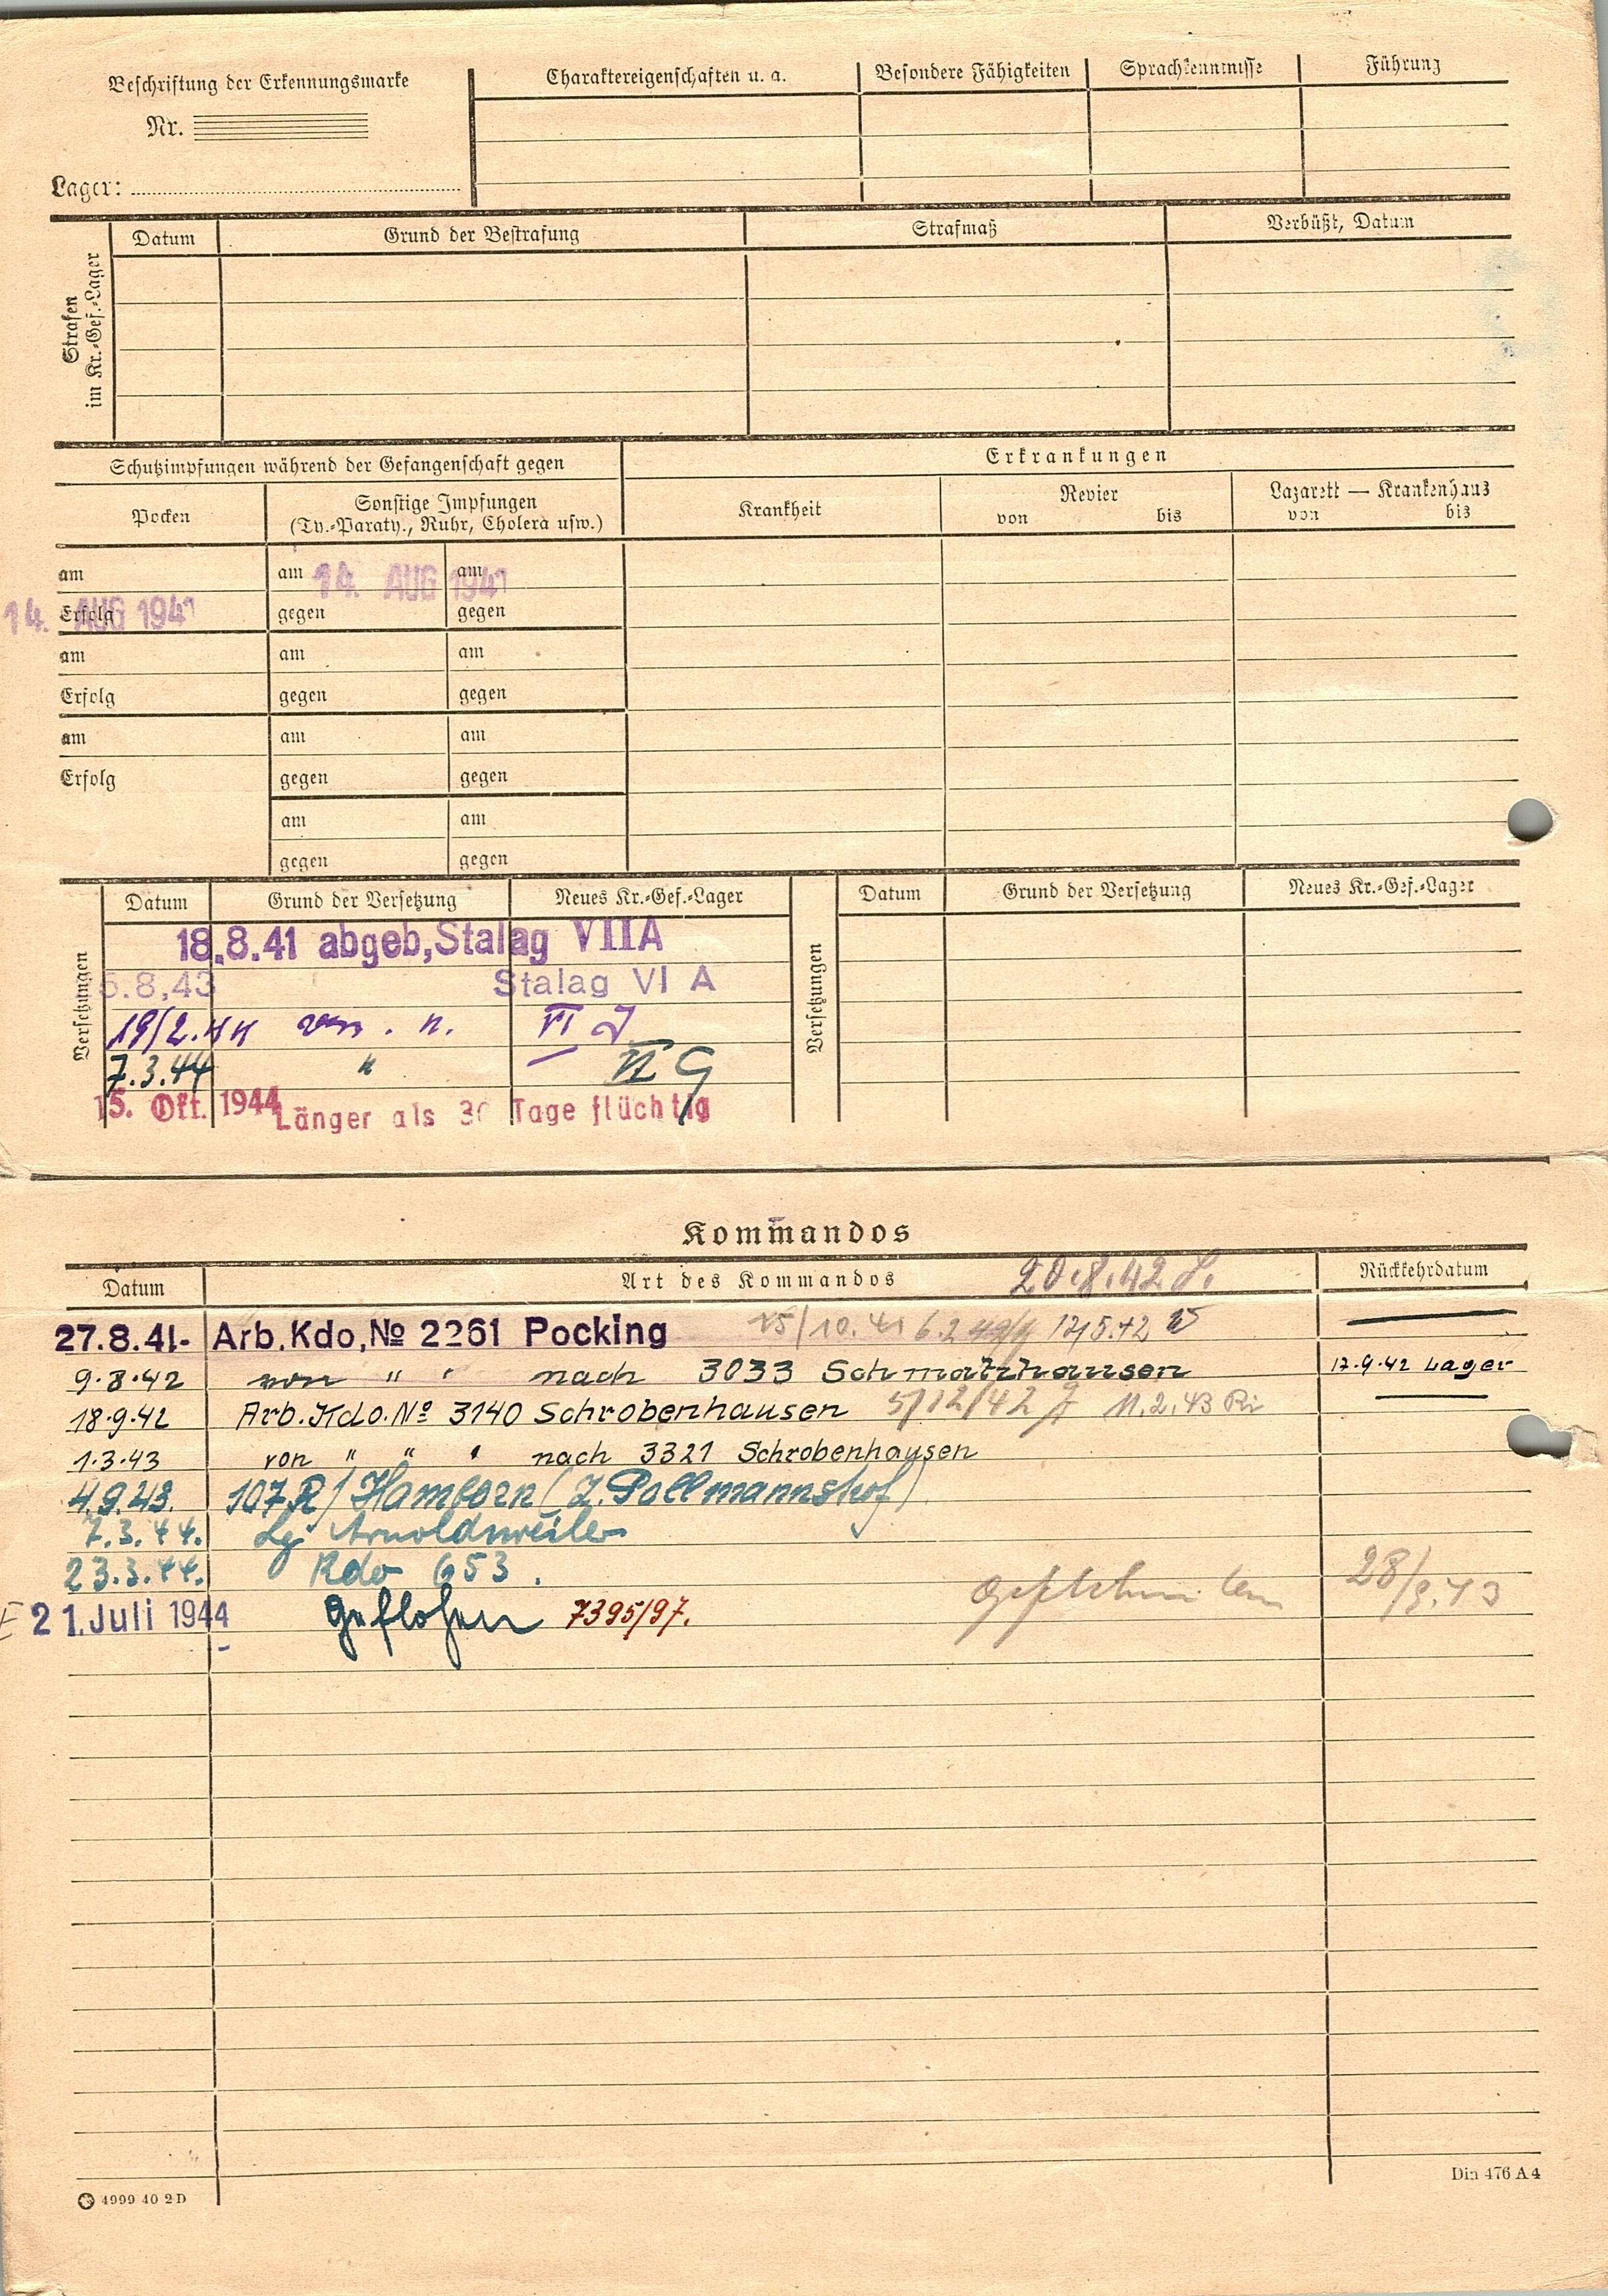 Beschriftung der Erkennungsmarke
Nr.
Lager:
Charaktereigenschaften u. a.
Besondere Fähigkeiten
Sprachkenntnisse
Führung
Strafen
im Kr.-Gef.-Lager
Datum
Grund der Bestrafung
Strafmaß
Verbüßt, Datum
Schutzimpfungen während der Gefangenschaft gegen
Erkrankungen
Pocken
Sonstige Impfungen
(Ty.-Paraty., Ruhr, Cholera usw.)
Krankheit
Revier
von bis
Lazarett — Krankenhaus
von bis
am am 14. AUG 1941 am
14. AUG 1941 Erfolg gegen gegen
am am am
Erfolg gegen gegen
am am am
Erfolg gegen gegen
am am
gegen gegen
Versetzungen
Datum Grund der Versetzung Neues Kr.-Gef.-Lager
18.8.41 abgeb, Stalag VIIA
6.8,43 Stalag VI A
19/2.44 n. VI J
7.3.44 " VI G
15. Okt. 1944 Länger als 30 Tage flüchtig
Versetzungen
Datum Grund der Versetzung Neues Kr.-Gef.-Lager
Kommandos
Datum Art des Kommandos 20.8.42 Rückkehrdatum
27.8.41- Arb. Kdo, № 2261 Pocking 15/10.41 6.2 17/5.42
9.8.42 von " " nach 3033 Schmatzhausen 17.9.42 Lager
18.9.42 Arb. Kdo. Nº 3140 Schrobenhausen 5/12/42 11.2.43 Ri
1.3.43 von " " " nach 3321 Schrobenhausen
4.9.43. 107 R / Hamborn (Z. Pollmannshof)
7.3.44. Lg. Arnoldsweiler
23.3.44. Kdo 653.
28/8.43
21. Juli 1944 Geflohen 7395/97.
4999 40 2 D
Din 476 A 4